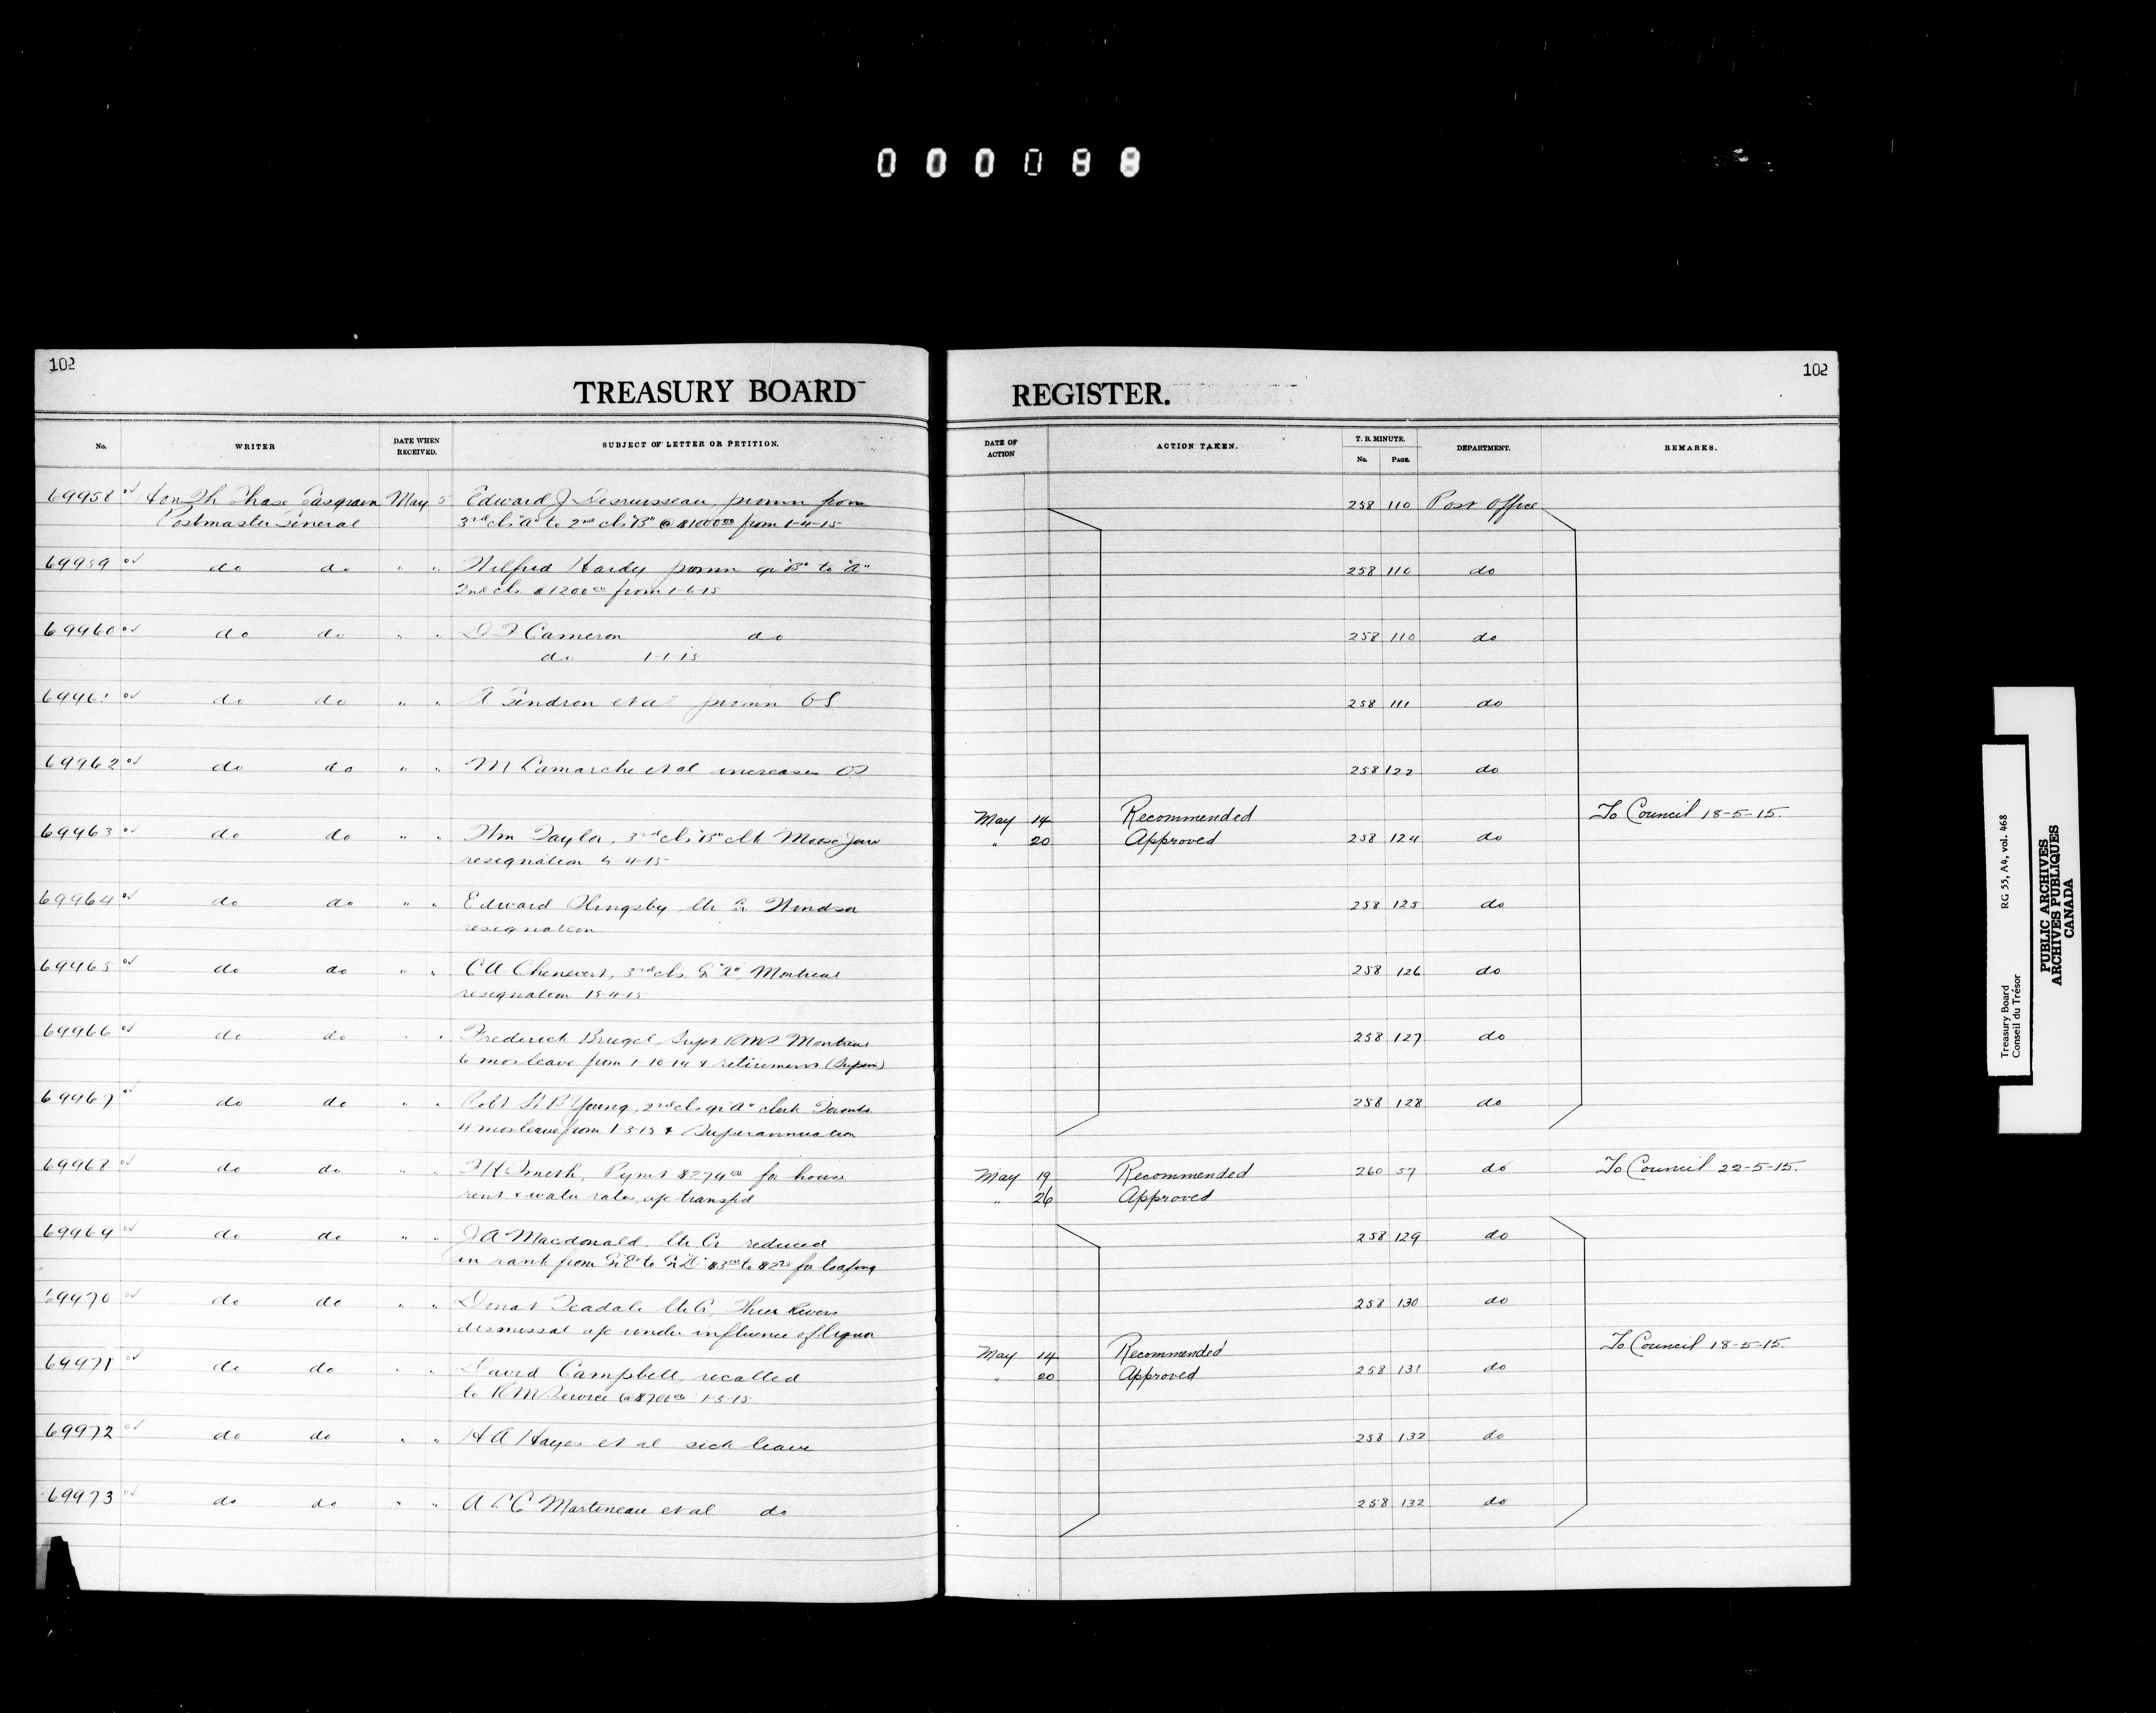 000088
102
TREASURY BOARD
REGISTER.
102
No. WRITER DATE WHEN RECEIVED. SUBJECT OF LETTER OR PETITION.
DATE OF ACTION ACTION TAKEN. T. B. MINUTE. No. PAGE. DEPARTMENT. REMARKS.
69958 Hon Th Chase Casgrain May 5 Edward J Desruisseau, promn from 258 110 Post Office
Postmaster General 3rd cls "A" to 2nd cls "B" @ $1000 00 from 1-4-15
69959 do do " " Wilfred Hardy promn gr "B" to "A" 258 110 do
2nd cls $1200 00 from 1-6-15
69960 do do " " D F Cameron do 258 110 do
do 1-1-15
69961 do do " " A Gendron et al promn OS 258 111 do
69962 do do " " M Lamarche et al increases OS 258 122 do
May 14 Recommended To Council 18-5-15.
69963 do do " " Wm Taylor, 3rd cls "B" clk Moose Jaw " 20 Approved 258 124 do
resignation 4-4-15
69964 do do " " Edward Slingsby Lr Cr Windsor 258 125 do
resignation
69965 do do " " C A Chenevert, 3rd cls. Gr "A", Montreal 258 126 do
resignation 15-4-15
69966 do do " " Frederick Bruegel Supt RMS Montreal 258 127 do
6 mos leave from 1-10-14 & retirement (Superan)
69967 do do " " Robt St B Young, 2nd cls gr "A" clerk Toronto 258 128 do
4 mos leave from 1-3-15 & Superannuation
69968 do do " " F H Smith, Pymt $274 00 for house May 19 Recommended 260 57 do To Council 22-5-15.
rent & water rates, a/c transfd " 26 Approved
69969 do do " " J A Macdonald, Lr Cr reduced 258 129 do
in rank from Gr "E" to Gr "D" $3 00 to $2 75 for loafing
69970 do do " " Donat Teadale Lr Cr, Three Rivers 258 130 do
dismissal a/c under influence of liquor
May 14 Recommended To Council 18-5-15.
69971 do do " " David Campbell, recalled " 20 Approved 258 131 do
to R M Service @ $700 00 1-5-15
69972 do do " " H A Hayes et al sick leave 258 132 do
69973 do do " " A L C Martineau et al do 258 132 do
Treasury Board RG 55, A4, vol. 468
Conseil du Trésor
PUBLIC ARCHIVES
ARCHIVES PUBLIQUES
CANADA